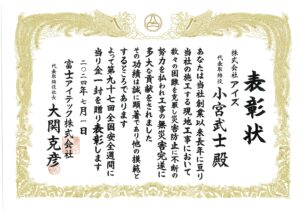 表彰状
株式会社アイズ
代表取締役
小宮武士殿
あなたは当社創業以来長年に亘り
当社の施工する現地工事において
数々の困難を克服し災害防止に不断の
努力を払われ工事の無災害完遂に
多大な貢献をされました
その功績は誠に顕著であり他の模範と
するところであります
よって第九十七回全国安全週間に
当り金一封を贈り表彰します
二〇二四年七月一日
富士アイテック株式会社
代表取締役社長
大関克彦